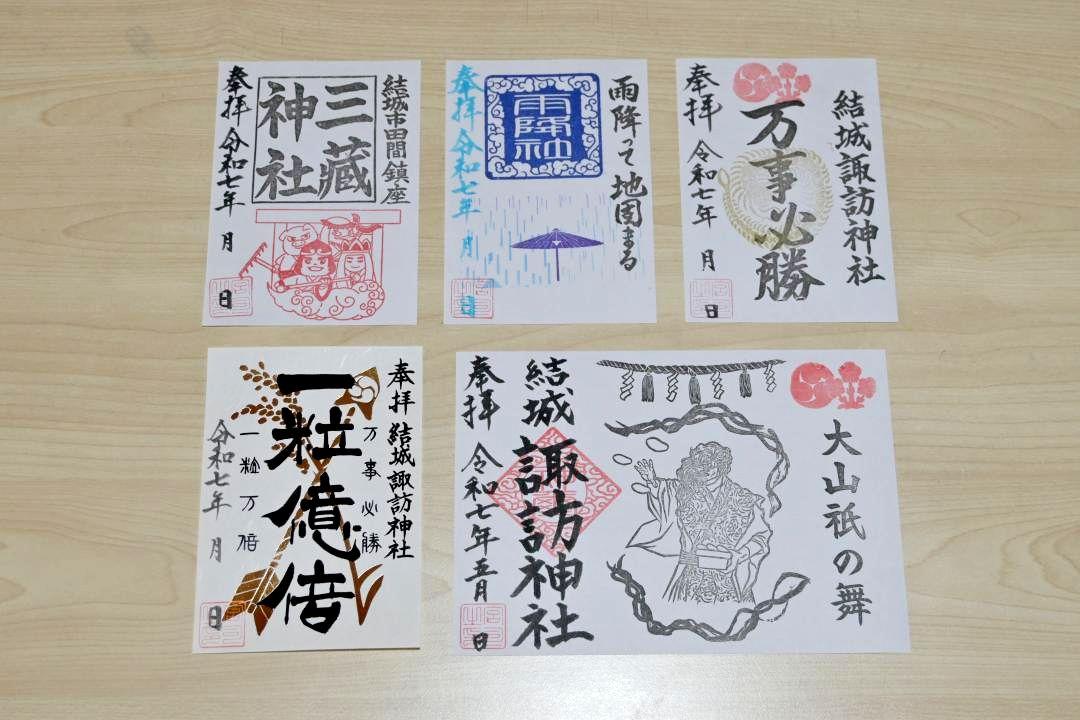 結城市田間鎮座
三蔵
神社
奉拝 令和七年 月 日
雨降って地固まる
雨降神社
奉拝 令和七年 月 日
結城諏訪神社
万事必勝
奉拝 令和七年 月 日
奉拝 結城諏訪神社
万事必勝
一粒億倍
一粒万倍
令和七年 月 日
大山祇の舞
結城 諏訪神社
奉拝 令和七年五月 日